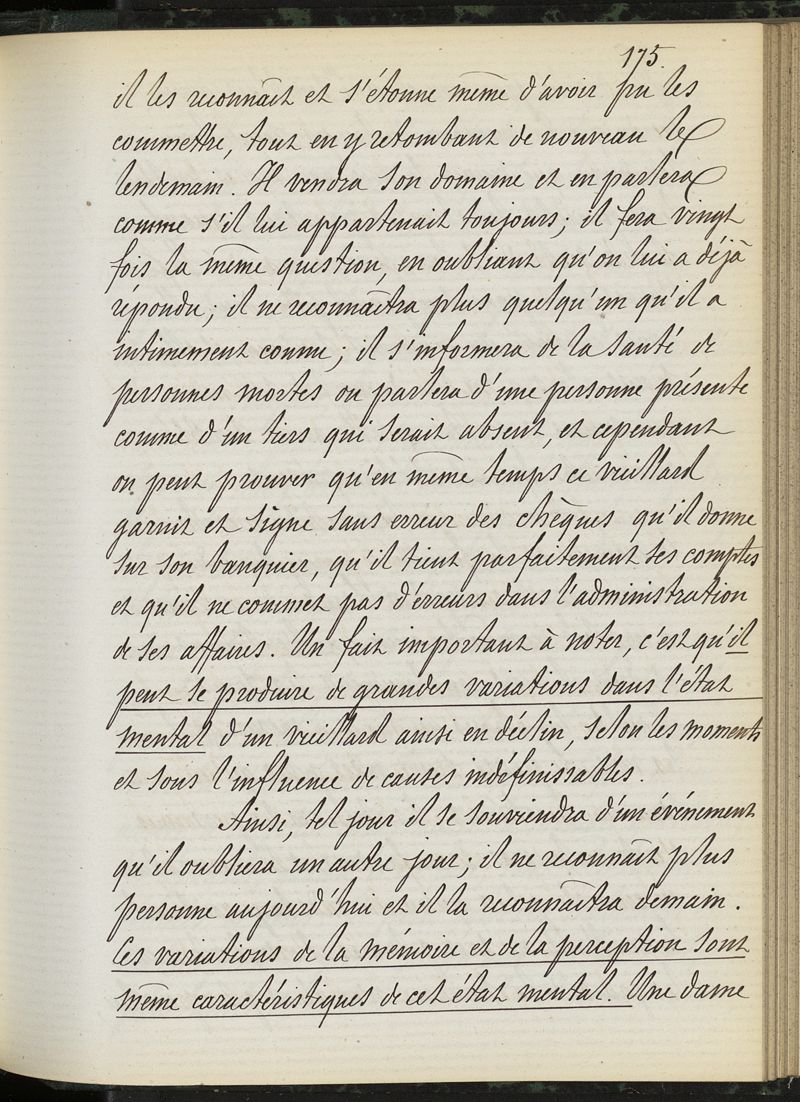 175.
il les reconnaît et s'étonne même d'avoir pu les
commettre, tout en y retombant de nouveau le
lendemain. Il vendra son domaine et en parlera
comme s'il lui appartenait toujours; il fera vingt
fois la même question, en oubliant qu'on lui a déjà
répondu; il ne reconnaîtra plus quelqu'un qu'il a
intimement connu; il s'informera de la santé de
personnes mortes ou parlera d'une personne présente
comme d'un tiers qui serait absent, et cependant
on peut prouver qu'en même temps ce vieillard
garnit et signe sans erreur des chèques qu'il donne
sur son banquier, qu'il tient parfaitement ses comptes
et qu'il ne commet pas d'erreurs dans l'administration
de ses affaires. Un fait important à noter, c'est qu'il
peut se produire de grandes variations dans l'état
mental d'un vieillard ainsi en déclin, selon les moments
et sous l'influence de causes indéfinissables.
Ainsi, tel jour il se souviendra d'un événement
qu'il oubliera un autre jour; il ne reconnaît plus
personne aujourd'hui et il la reconnaîtra demain.
Ces variations de la mémoire et de la perception sont
même caractéristiques de cet état mental. Une dame